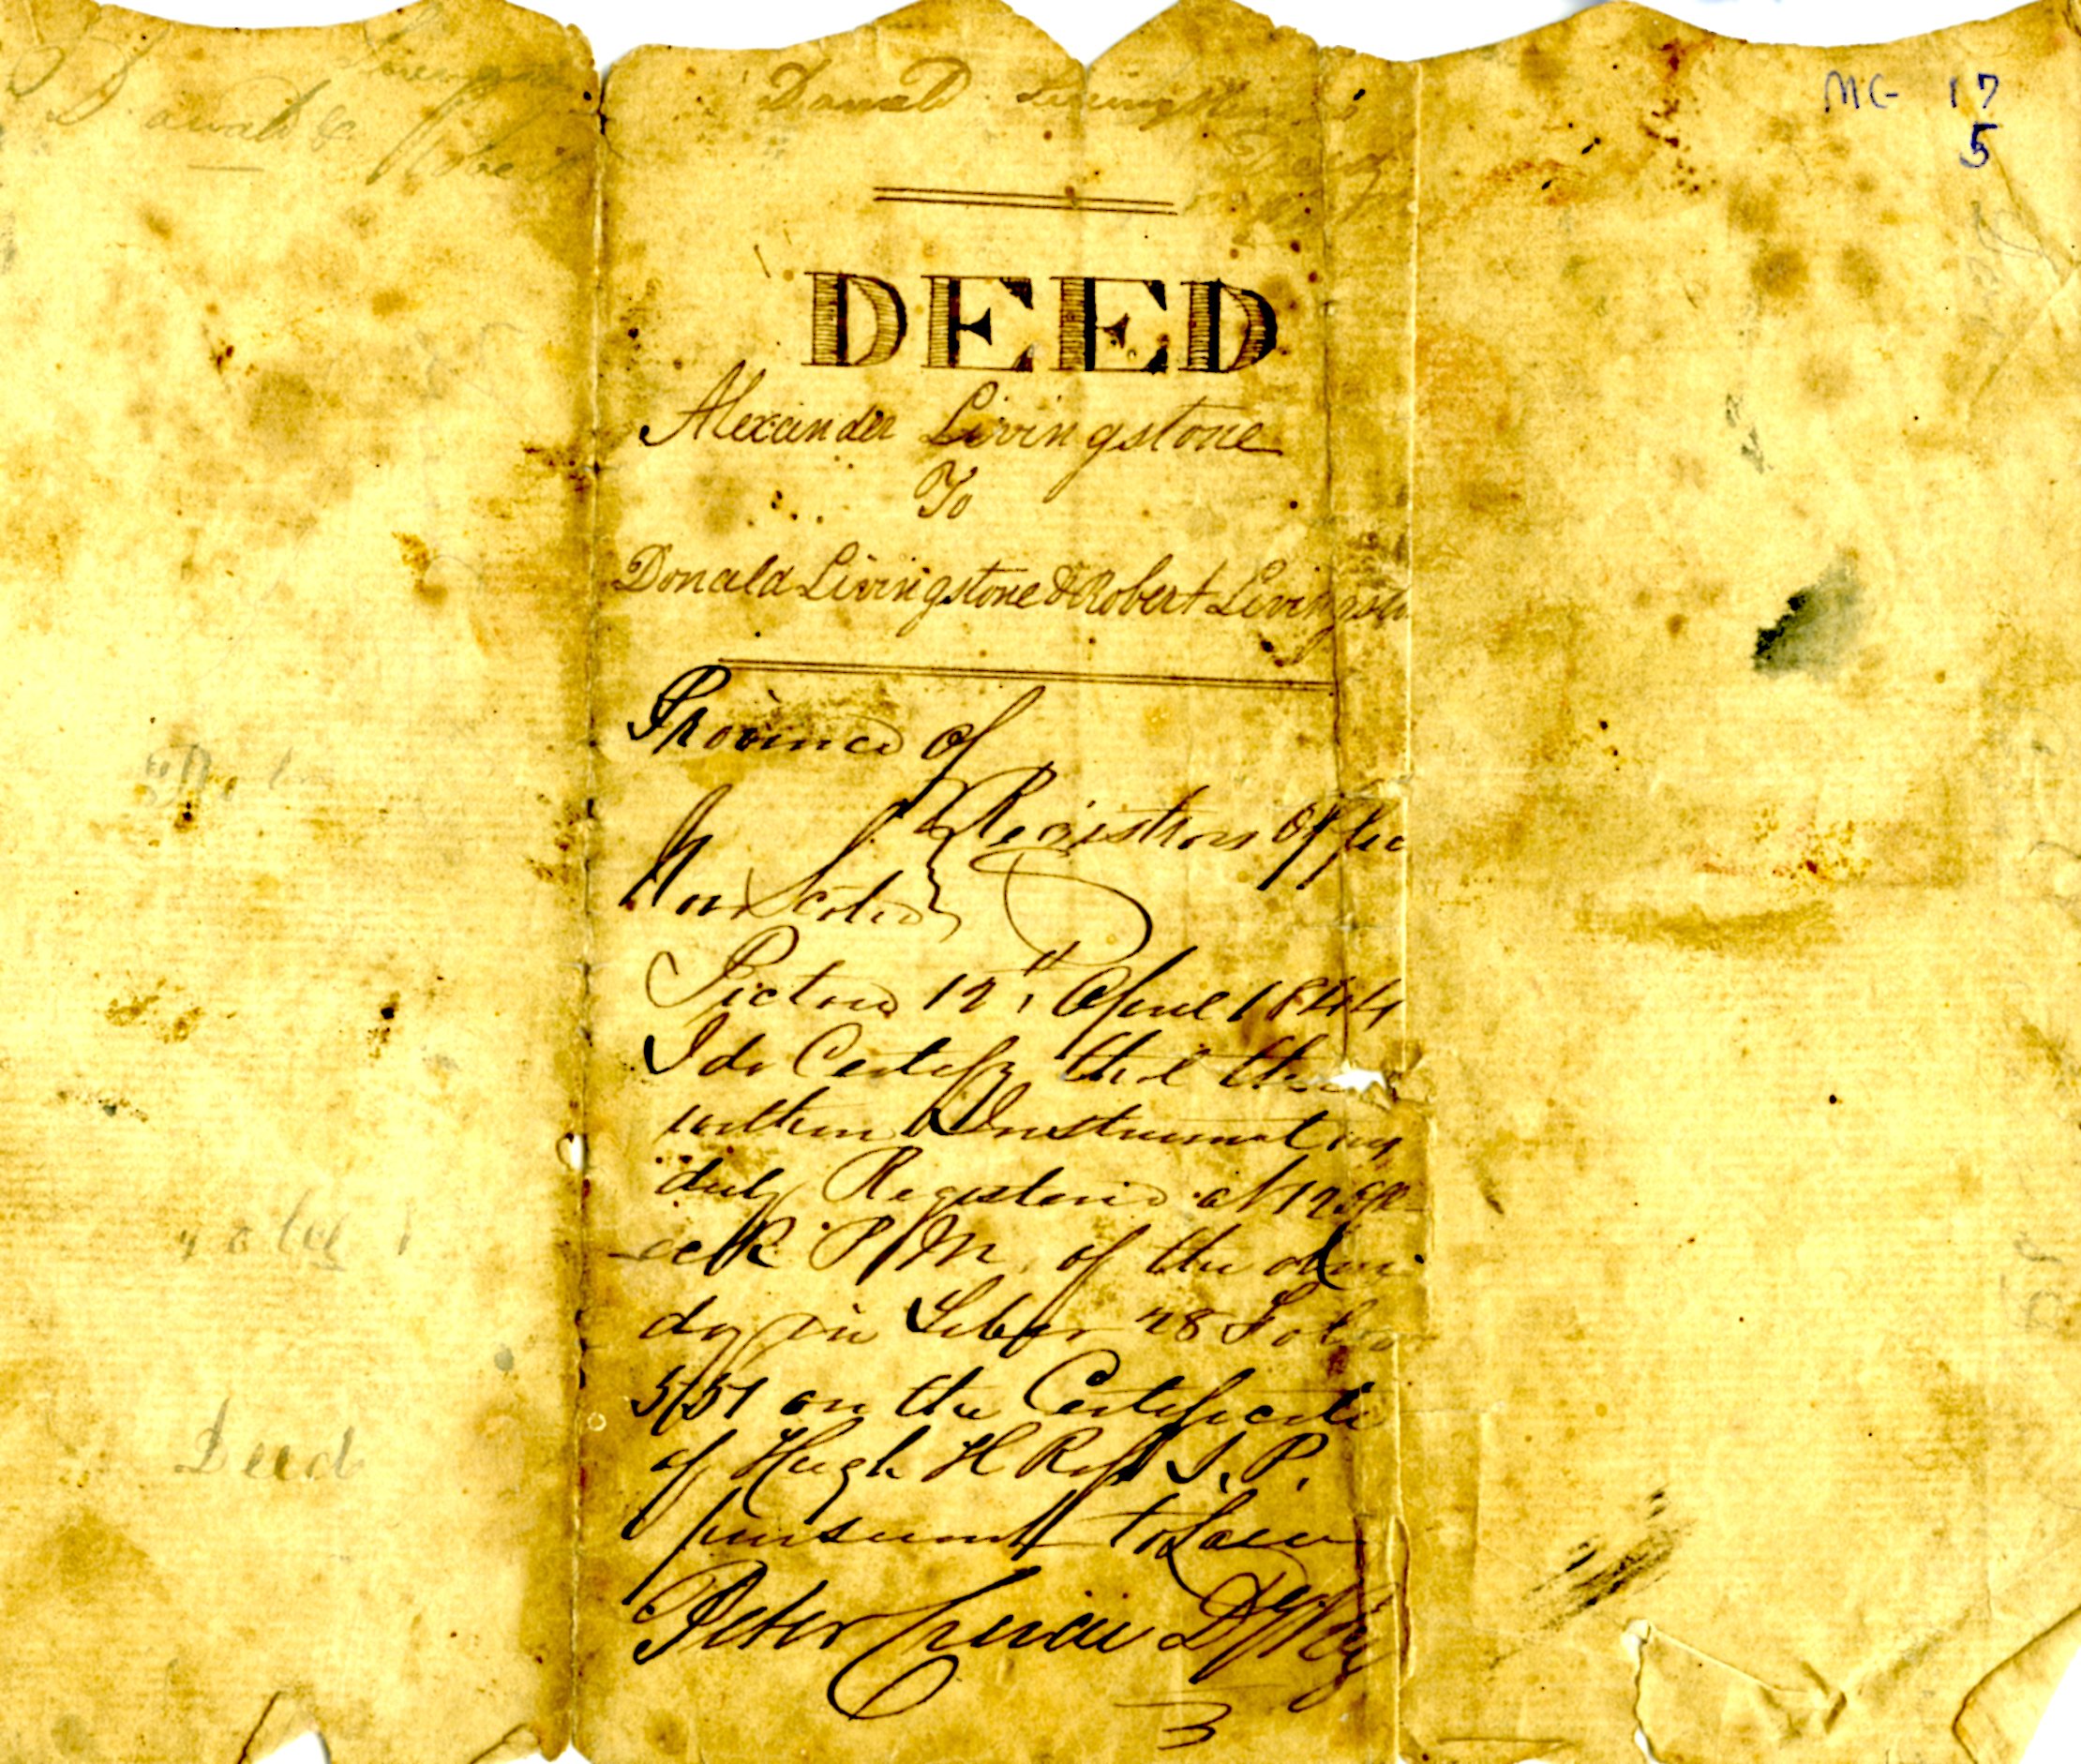 MG 17
5
Donald & Robe
Donald Livingston
DEED
Alexander Livingstone
To
Donald Livingstone & Robert Livingsto
Province of
Registrars Offic
Nova Scotia
Pictou 12th April 1844
I do Certify that the
within Instrument was
duly Registered at 12 O'Cl
ock P M. of the above
day in Liber 28 Folio
5/51 on the Certificate
of Hugh H Ross J. P.
pursuant to Law
Peter Dy Reg
Deed